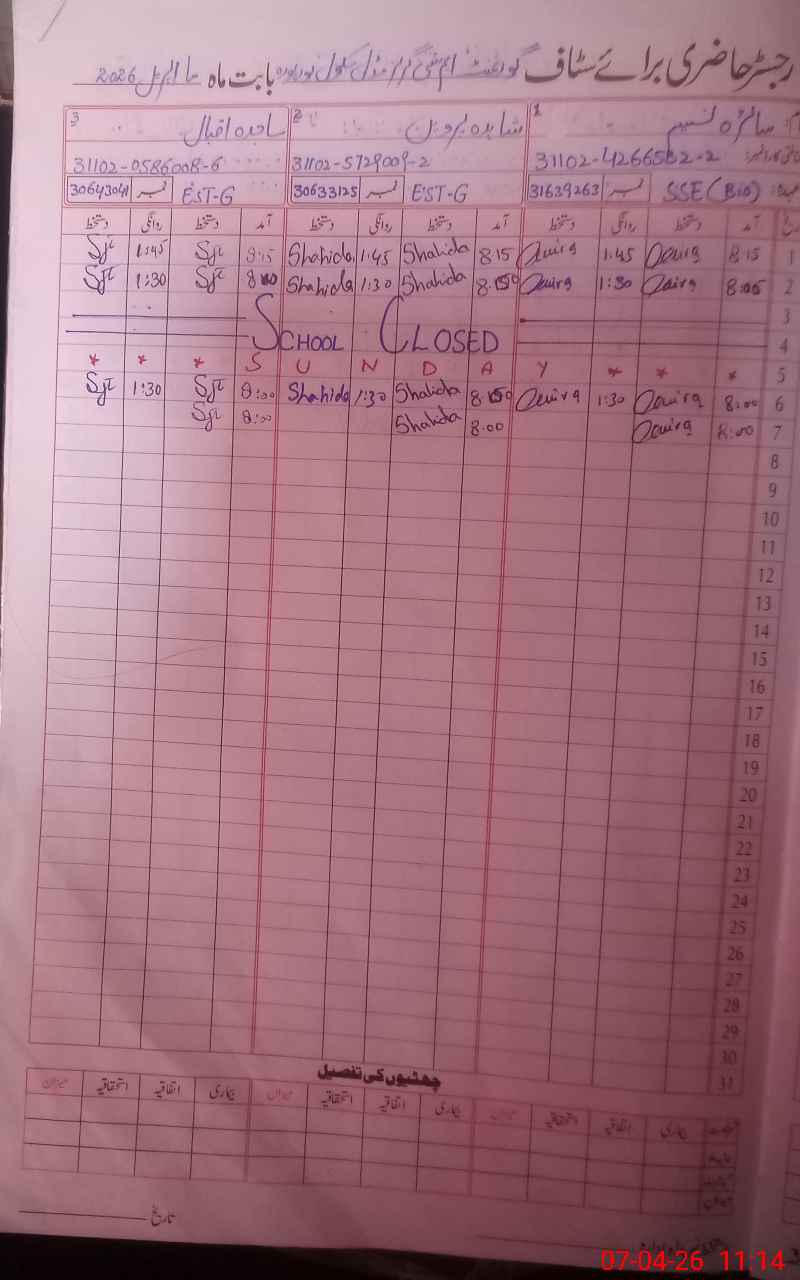 رجسٹر حاضری برائے سٹاف گورنمنٹ ایم سی گرلز مڈل سکول بابت ماہ اپریل 2026
1 سائرہ نسیم 2 شاہدہ پروین 3 ساجدہ اقبال
31102-4266582-2 31102-5729009-2 31102-0586008-6
SSE (Bio) نمبر 31639263 EST-G نمبر 30633125 EST-G نمبر 30643041
آمد دستخط روانگی دستخط آمد دستخط روانگی دستخط آمد دستخط روانگی دستخط
1 8:15 Saira 1:45 Saira 8:15 Shahida 1:45 Shahida 8:15 1:45
2 8:05 Saira 1:30 Saira Shahida 1:30 Shahida 1:30
3
SCHOOL CLOSED
4
5 * * * S U N D A Y * * *
6 8:00 Saira 1:30 Saira Shahida 1:30 Shahida 8:00 1:30
7 8:00 Saira 8:00 Shahida 8:00
8
9
10
11
12
13
14
15
16
17
18
19
20
21
22
23
24
25
26
27
28
29
30
31
چھٹیوں کی تفصیل
بیماری اتفاقیہ استحقاقیہ میزان بیماری اتفاقیہ استحقاقیہ میزان بیماری اتفاقیہ استحقاقیہ میزان
تاریخ
07-04-26 11:14